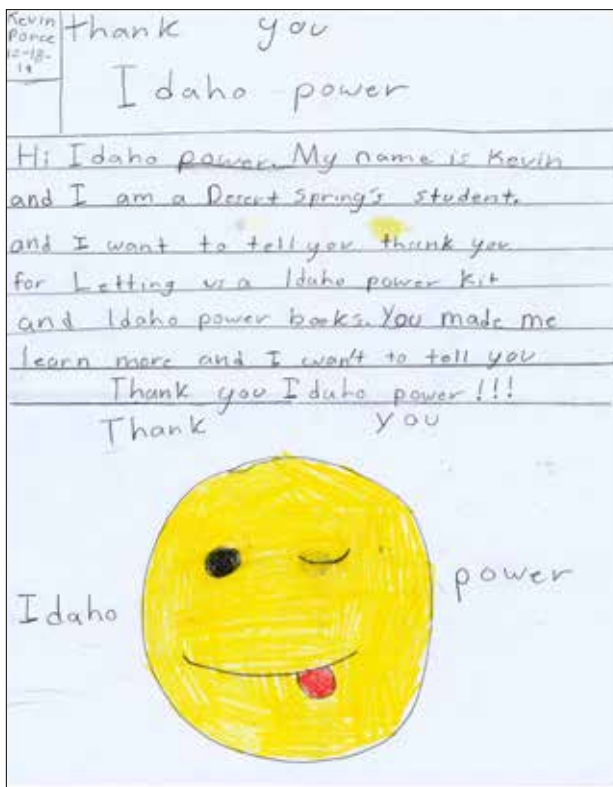 Kevin
Ponce
12-18-
19
thank you
Idaho power
Hi Idaho power. My name is Kevin
and I am a Desert Spring's student.
and I want to tell you thank you
for Letting us a Idaho power kit
and Idaho power books. You made me
learn more and I wan't to tell you
Thank you Idaho power!!!
Thank you
Idaho power